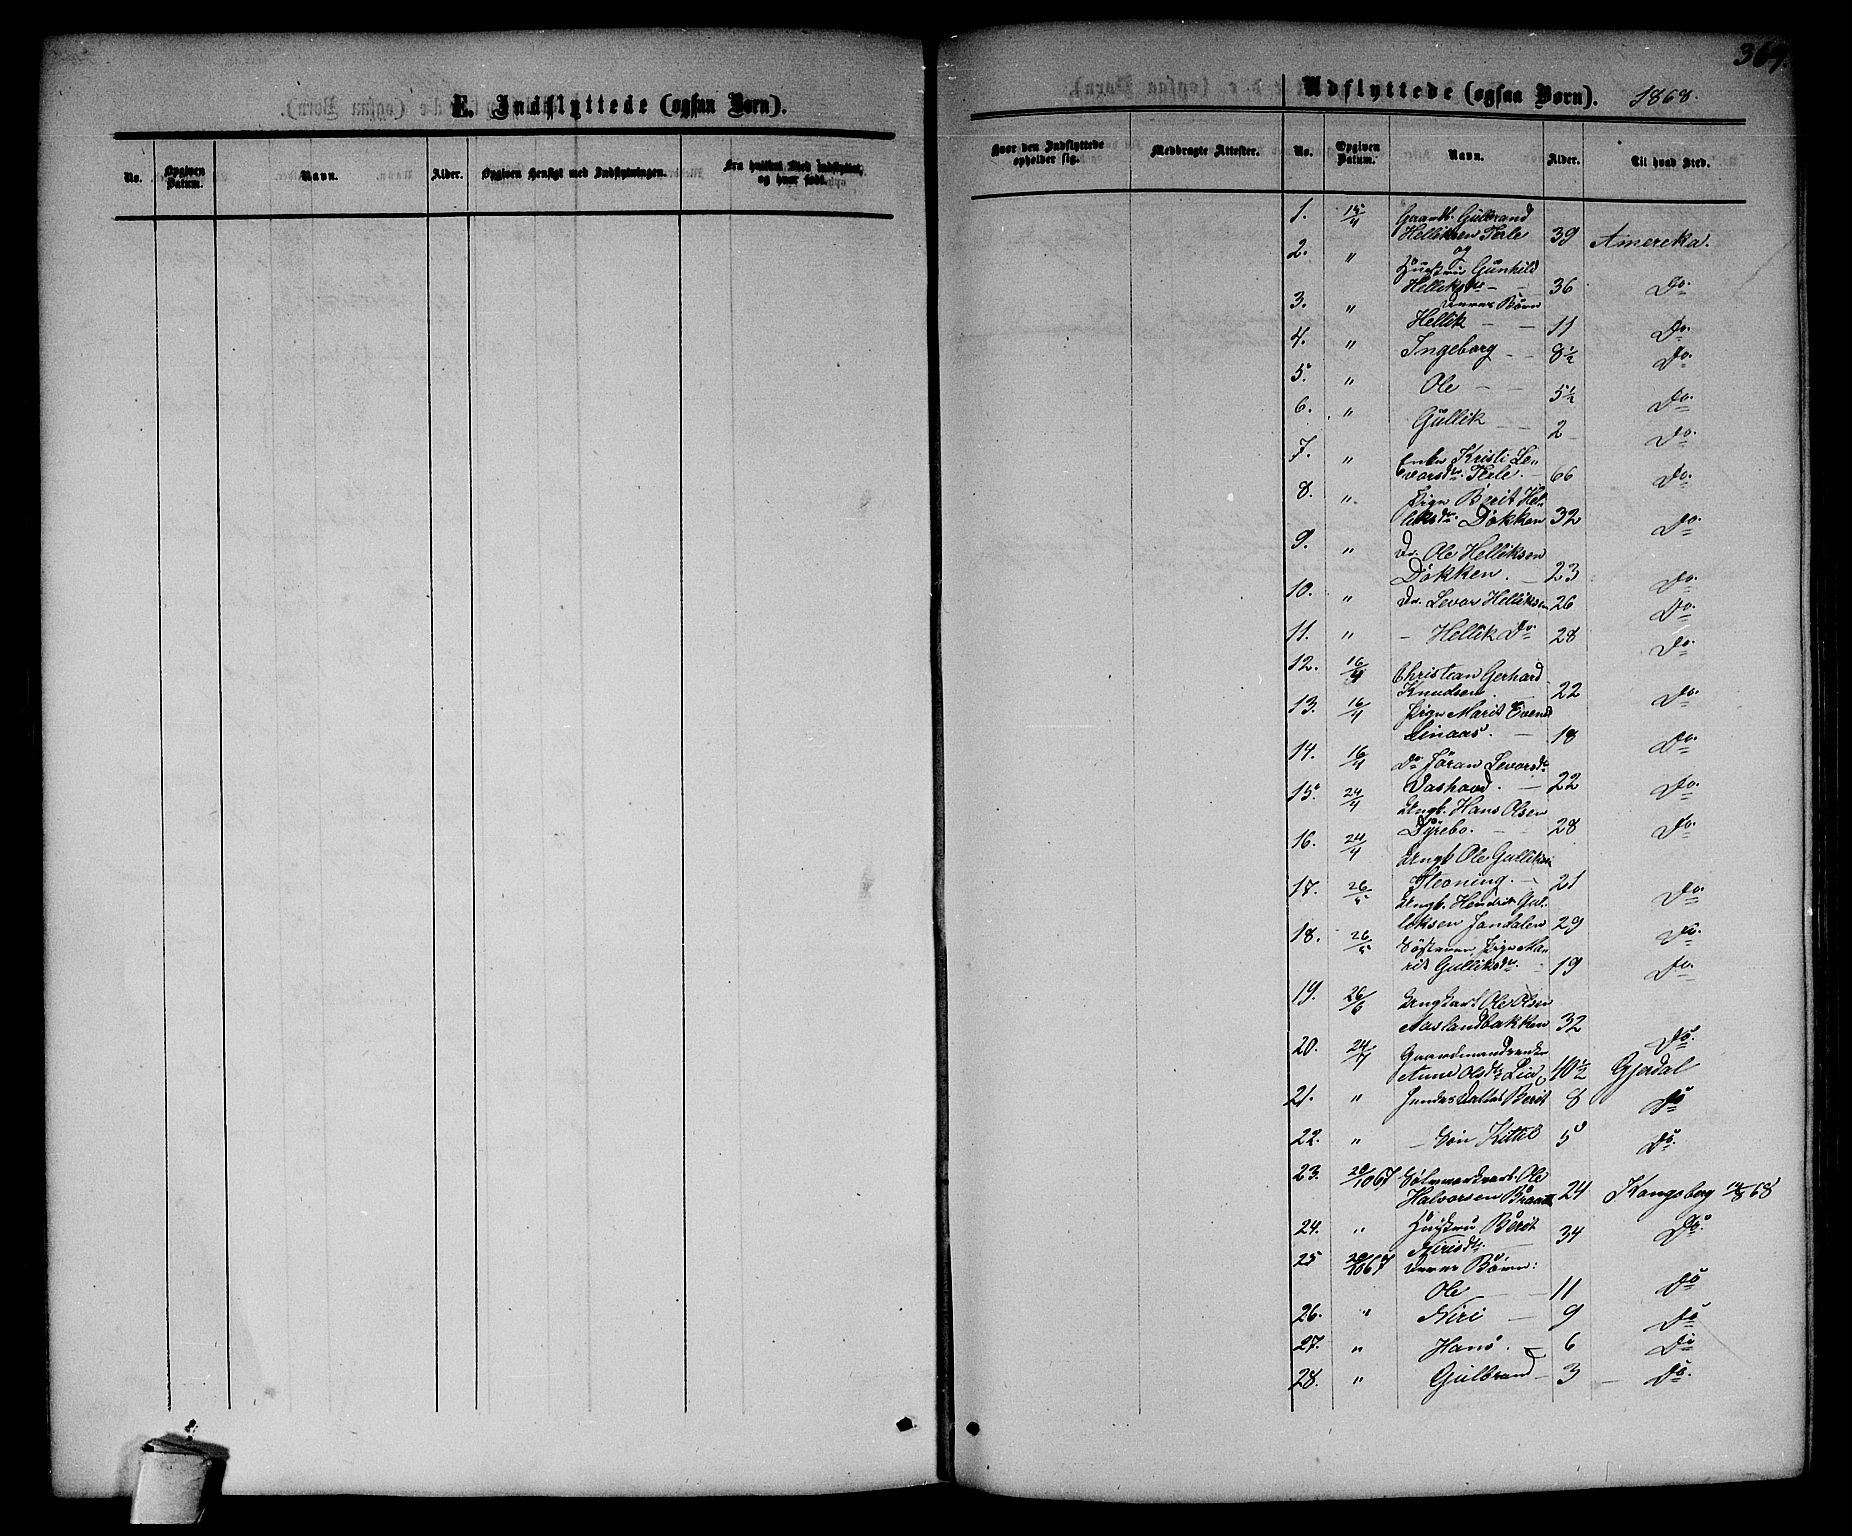 E. Indflyttede (ogsaa Børn).
No.
Opgiven Datum.
Navn.
Alder.
Opgiven Hensigt med Indflytningen.
Fra hvilket Sted indflyttet, og hvor født.
Udflyttede (ogsaa Børn). 1868.
Hvor den Indflyttede opholder sig.
Medbragte Attester.
No.
Opgiven Datum.
Navn.
Alder.
Til hvad Sted.
1. 15/4 Gaardb. Gulbrand
Helliksen Terle 39 Amereka.
2. " og
Hustru Gunhild
Helliksdr - 36 Do
3. " Deres Børn
Hellik - - 11 Do.
4. " Ingeborg - - 8½ Do.
5. " Ole - - 5½ Do.
6. " Gullik - - 2 Do.
7. " Enke Kristi Le-
vorsdr. Terle. 66 Do.
8. " Pige Berit Hel-
liksdr. Døkken 32 Do.
9. " Do. Ole Helliksen
Døkken. - 23 Do.
10. " Do. Levor Helliksen 26 Do.
11. " - Hellik Do 28 Do.
12. 16/4 Christian Gerhard
Knudsen. - 22 Do.
13. 16/4 Pige Marit Evensd
Linaas. - 18 Do.
14. 16/4 Do Jøran Levorsdr
Vashovd. - 22 Do.
15. 24/4 Ungk. Hans Olsen
Dyrebo. - - 28 Do.
16. 24/4 Ungk Ole Gulliksen
Stevning. - 21 Do.
17. 26/5 Ungk. Hendrik Gul-
liksen Jondalen 29 Do.
18. 26/5 Søsteren Pige Ma-
rit Gulliksdr. - 19 Do.
19. 26/6 Ungkarl Ole Olsen
Aaslandbakken 32 Do.
20. 24/7 Gaardmandsenke
Anne Olsdr Lid, 40½ Gjerdal
21. " Hendes Datter Berit 8 Do
22. " - Søn Kittil 5 Do.
23. 20/10 67 Sølvverksarb. Ole
Halvorsen Braata 24 Kongsberg 14/8 68
24. " Hustru Berit
Nirisdr. - 34 Do.
25 20/10 67 Deres Børn:
Ole - 11 Do
26. " Niri - 9 Do
27. " Hans. - 6 Do
28. " Gulbrand - 3 - Do.